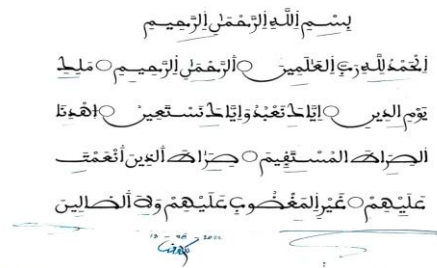 بِسْمِ اللَّهِ الرَّحْمَٰنِ الرَّحِيمِ
الْحَمْدُ لِلَّهِ رَبِّ الْعَالَمِينَ ○ الرَّحْمَٰنِ الرَّحِيمِ ○ مَلِكِ
يَوْمِ الدِّينِ ○ إِيَّاكَ نَعْبُدُ وَإِيَّاكَ نَسْتَعِينُ ○ اهْدِنَا
الصِّرَاطَ الْمُسْتَقِيمَ ○ صِرَاطَ الَّذِينَ أَنْعَمْتَ
عَلَيْهِمْ ○ غَيْرِ الْمَغْضُوبِ عَلَيْهِمْ وَلَا الضَّالِّينَ